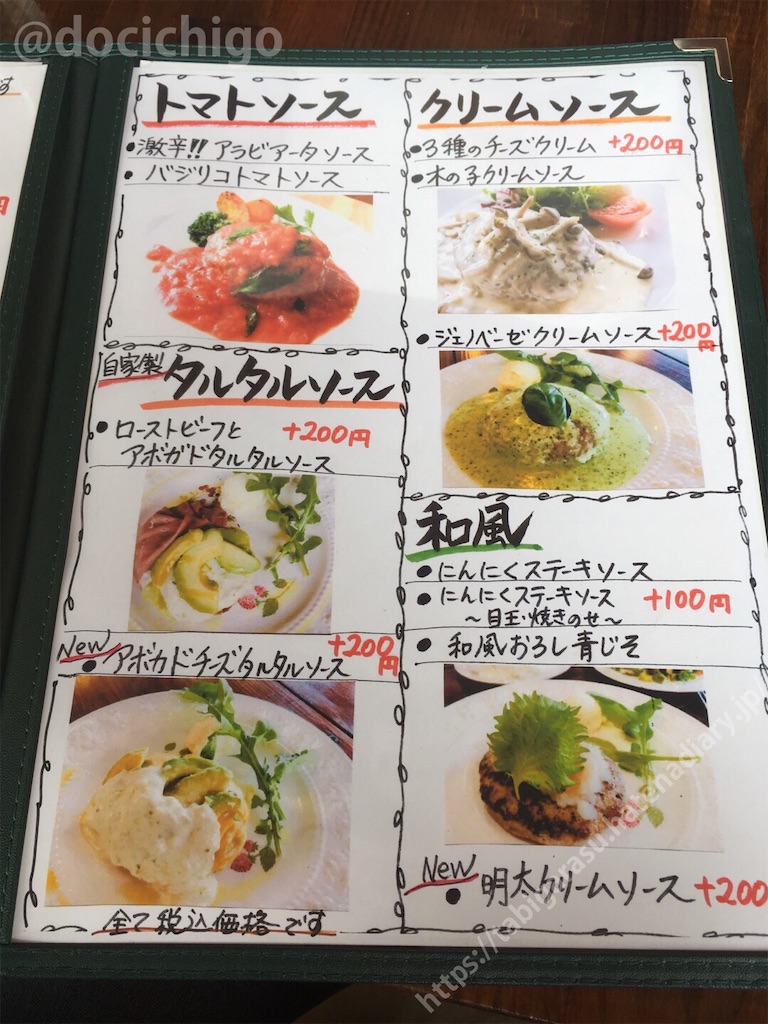 @docichigo
トマトソース
●激辛!! アラビアータソース
●バジリコトマトソース
自家製 タルタルソース
●ローストビーフと +200円
アボガドタルタルソース
New
●アボカドチーズタルタルソース +200円
全て税込価格です
クリームソース
●3種のチーズクリーム +200円
●木の子クリームソース
●ジェノベーゼクリームソース +200円
和風
●にんにくステーキソース
●にんにくステーキソース +100円
～目玉焼きのせ～
●和風おろし青じそ
New
●明太クリームソース +200
す
円